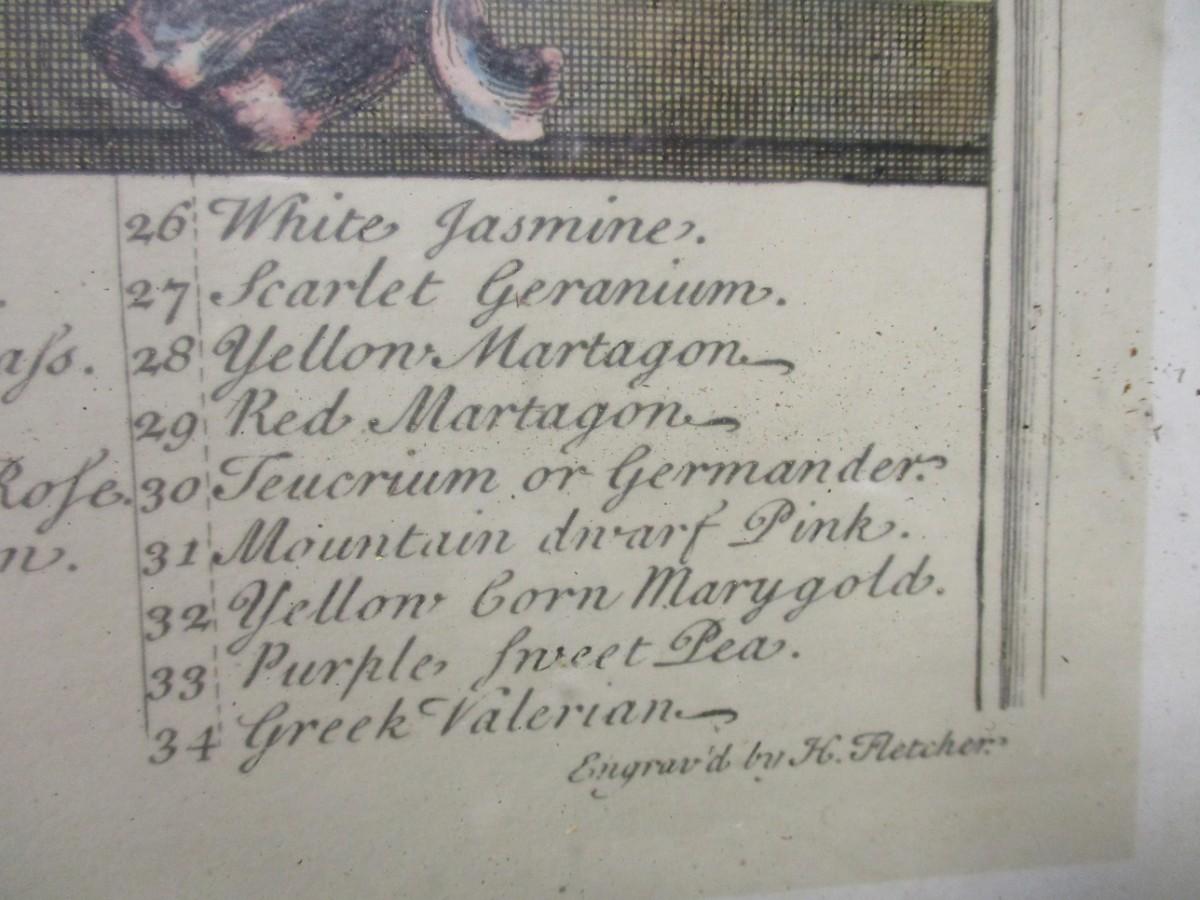 26 White Jasmine.
27 Scarlet Geranium.
28 Yellow Martagon
29 Red Martagon
Rose. 30 Teucrium or Germander.
31 Mountain dwarf Pink.
32 Yellow Corn Marygold.
33 Purple Sweet Pea.
34 Greek Valerian
Engrav'd by H. Fletcher.